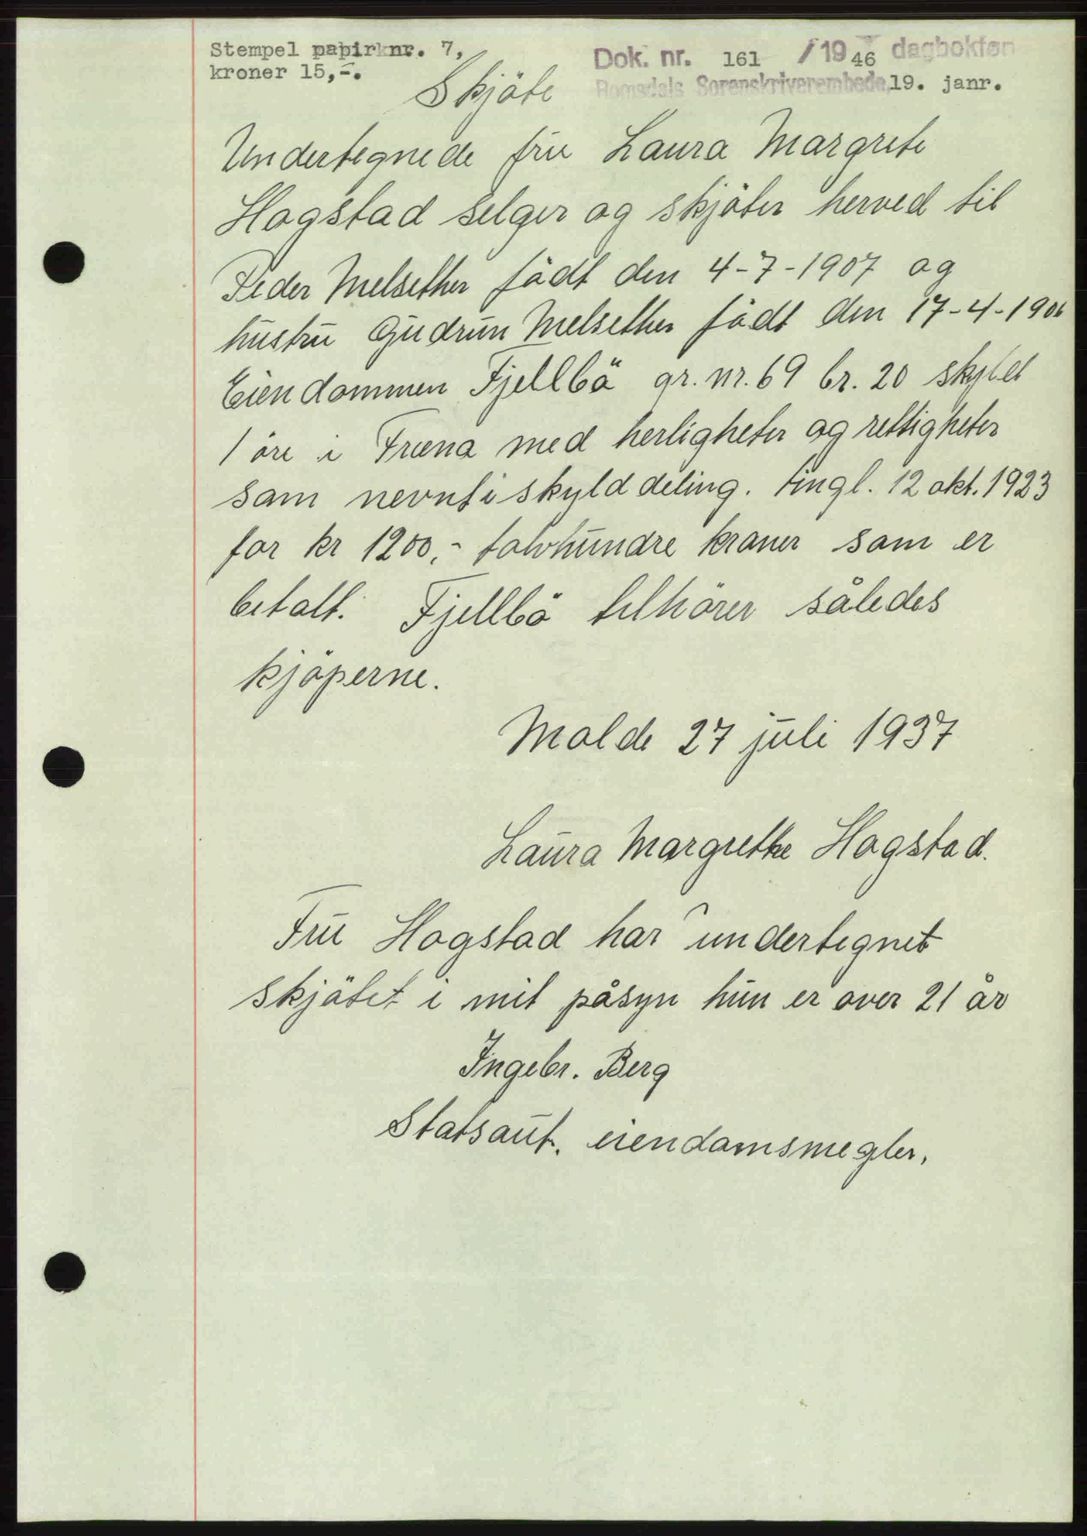 Stempel papirknr. 7,
kroner 15,-.
Dok. nr. 161 /1946 dagbokført
Romsdals Sorenskriverembede, 19. janr.
Skjöte
Undertegnede fru Laura Margrete
Hogstad selger og skjöter herved til
Peder Melsether födt den 4-7-1907 og
hustru Gudrun Melsether födt den 17-4-1906
Eiendommen Fjellbö gr. nr. 69 br. 20 skyld
1 öre i Fræna med herligheter og rettigheter
som nevnt i skylddeling. tingl. 12 okt. 1923
for kr 1200,- tolvhundre kroner som er
betalt. Fjellbö tilhörer således
kjöperne.
Molde 27 juli 1937
Laura Margrethe Hogstad.
Fru Hogstad har undertegnet
skjötet i mit påsyn hun er over 21 år
Ingebr. Berg
Statsaut. eiendomsmegler.